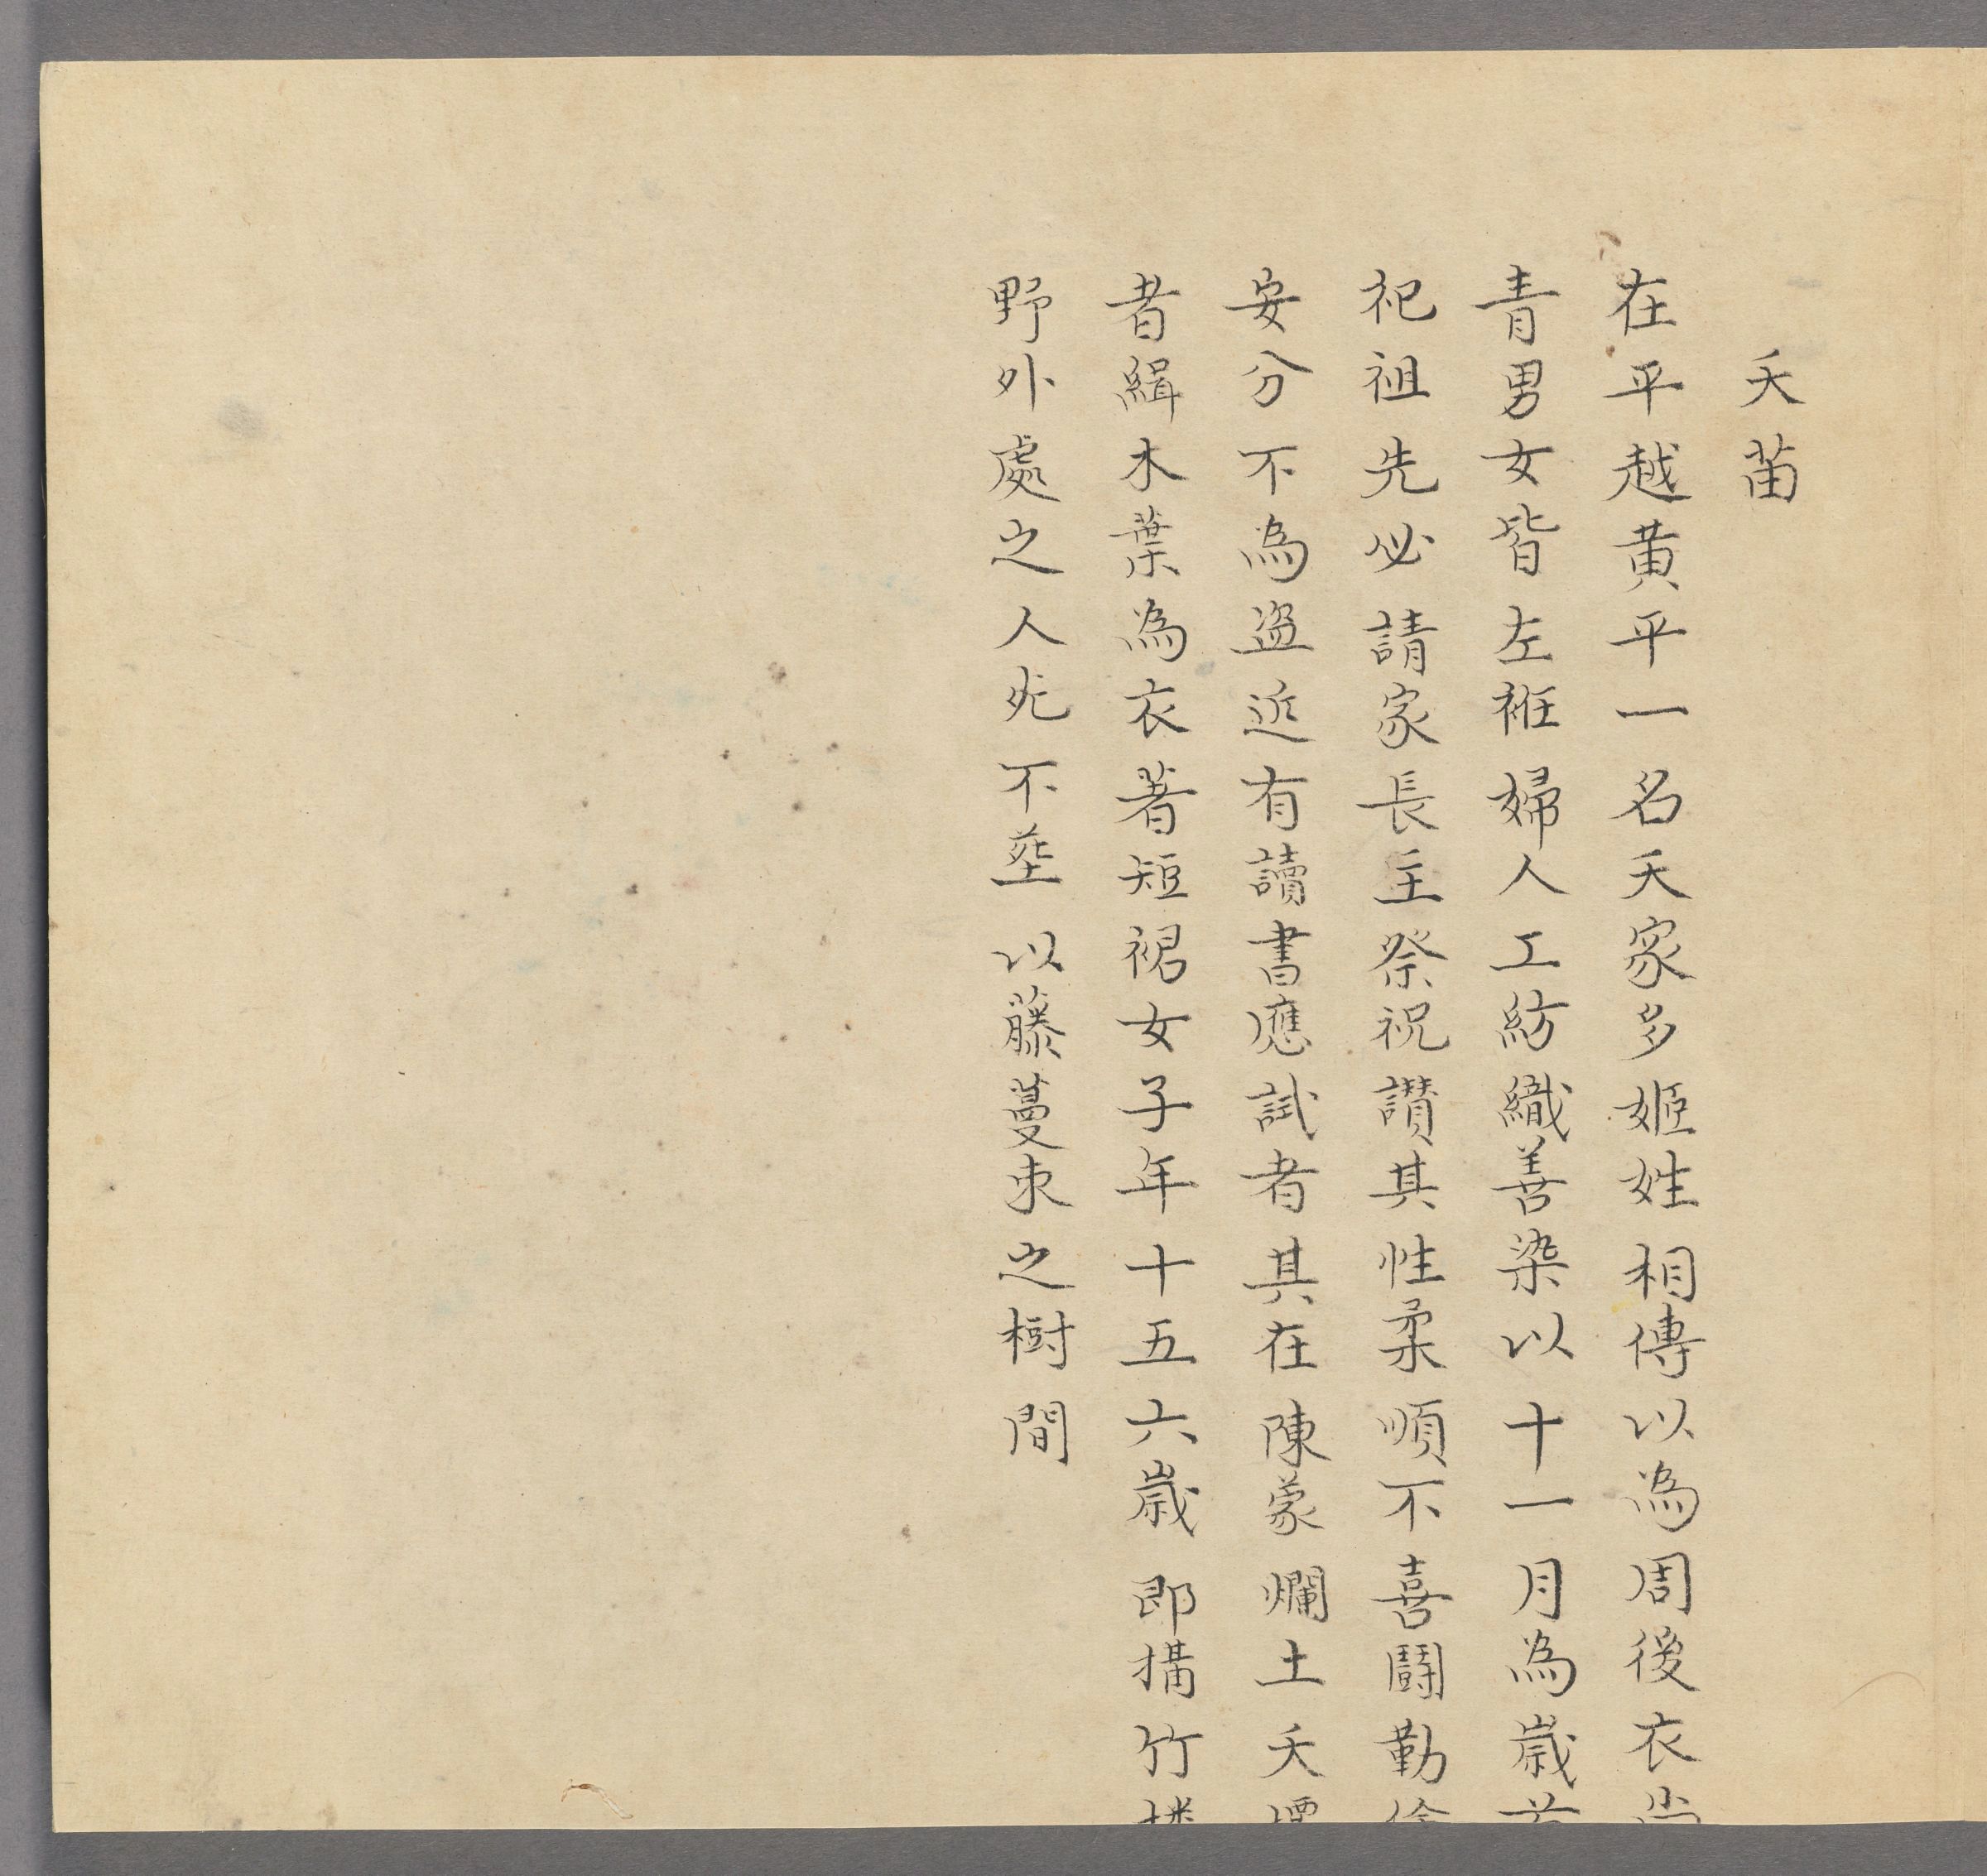 夭苗
在平越黃平一名夭家多姬姓相傳以為周後衣尚
青男女皆左袵婦人工紡織善染以十一月為歲首
祀祖先必請家長主祭祝讃其性柔順不喜鬪勤儉
安分不為盜近有讀書應試者其在陳蒙爛土夭壩
者緝木葉為衣著短裙女子年十五六歲即搆竹樓
野外處之人死不塟以藤蔓束之樹間